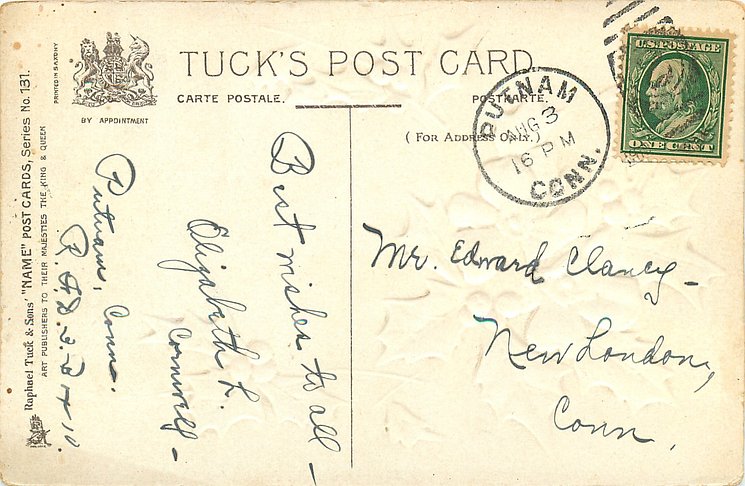 TUCK'S POST CARD.
CARTE POSTALE.
POSTKARTE.
(For Address Only.)
BY APPOINTMENT
PRINTED IN SAXONY
Raphael Tuck & Sons' "NAME" POST CARDS, Series No. 131.
ART PUBLISHERS TO THEIR MAJESTIES THE KING & QUEEN
PUTNAM
AUG 3
16 PM
CONN.
U.S. POSTAGE
ONE CENT
Best wishes to all –
Elizabeth L.
Cornwell –
Putnam, Conn.
R.F.D.
Mr. Edward Clancy –
New London,
Conn.